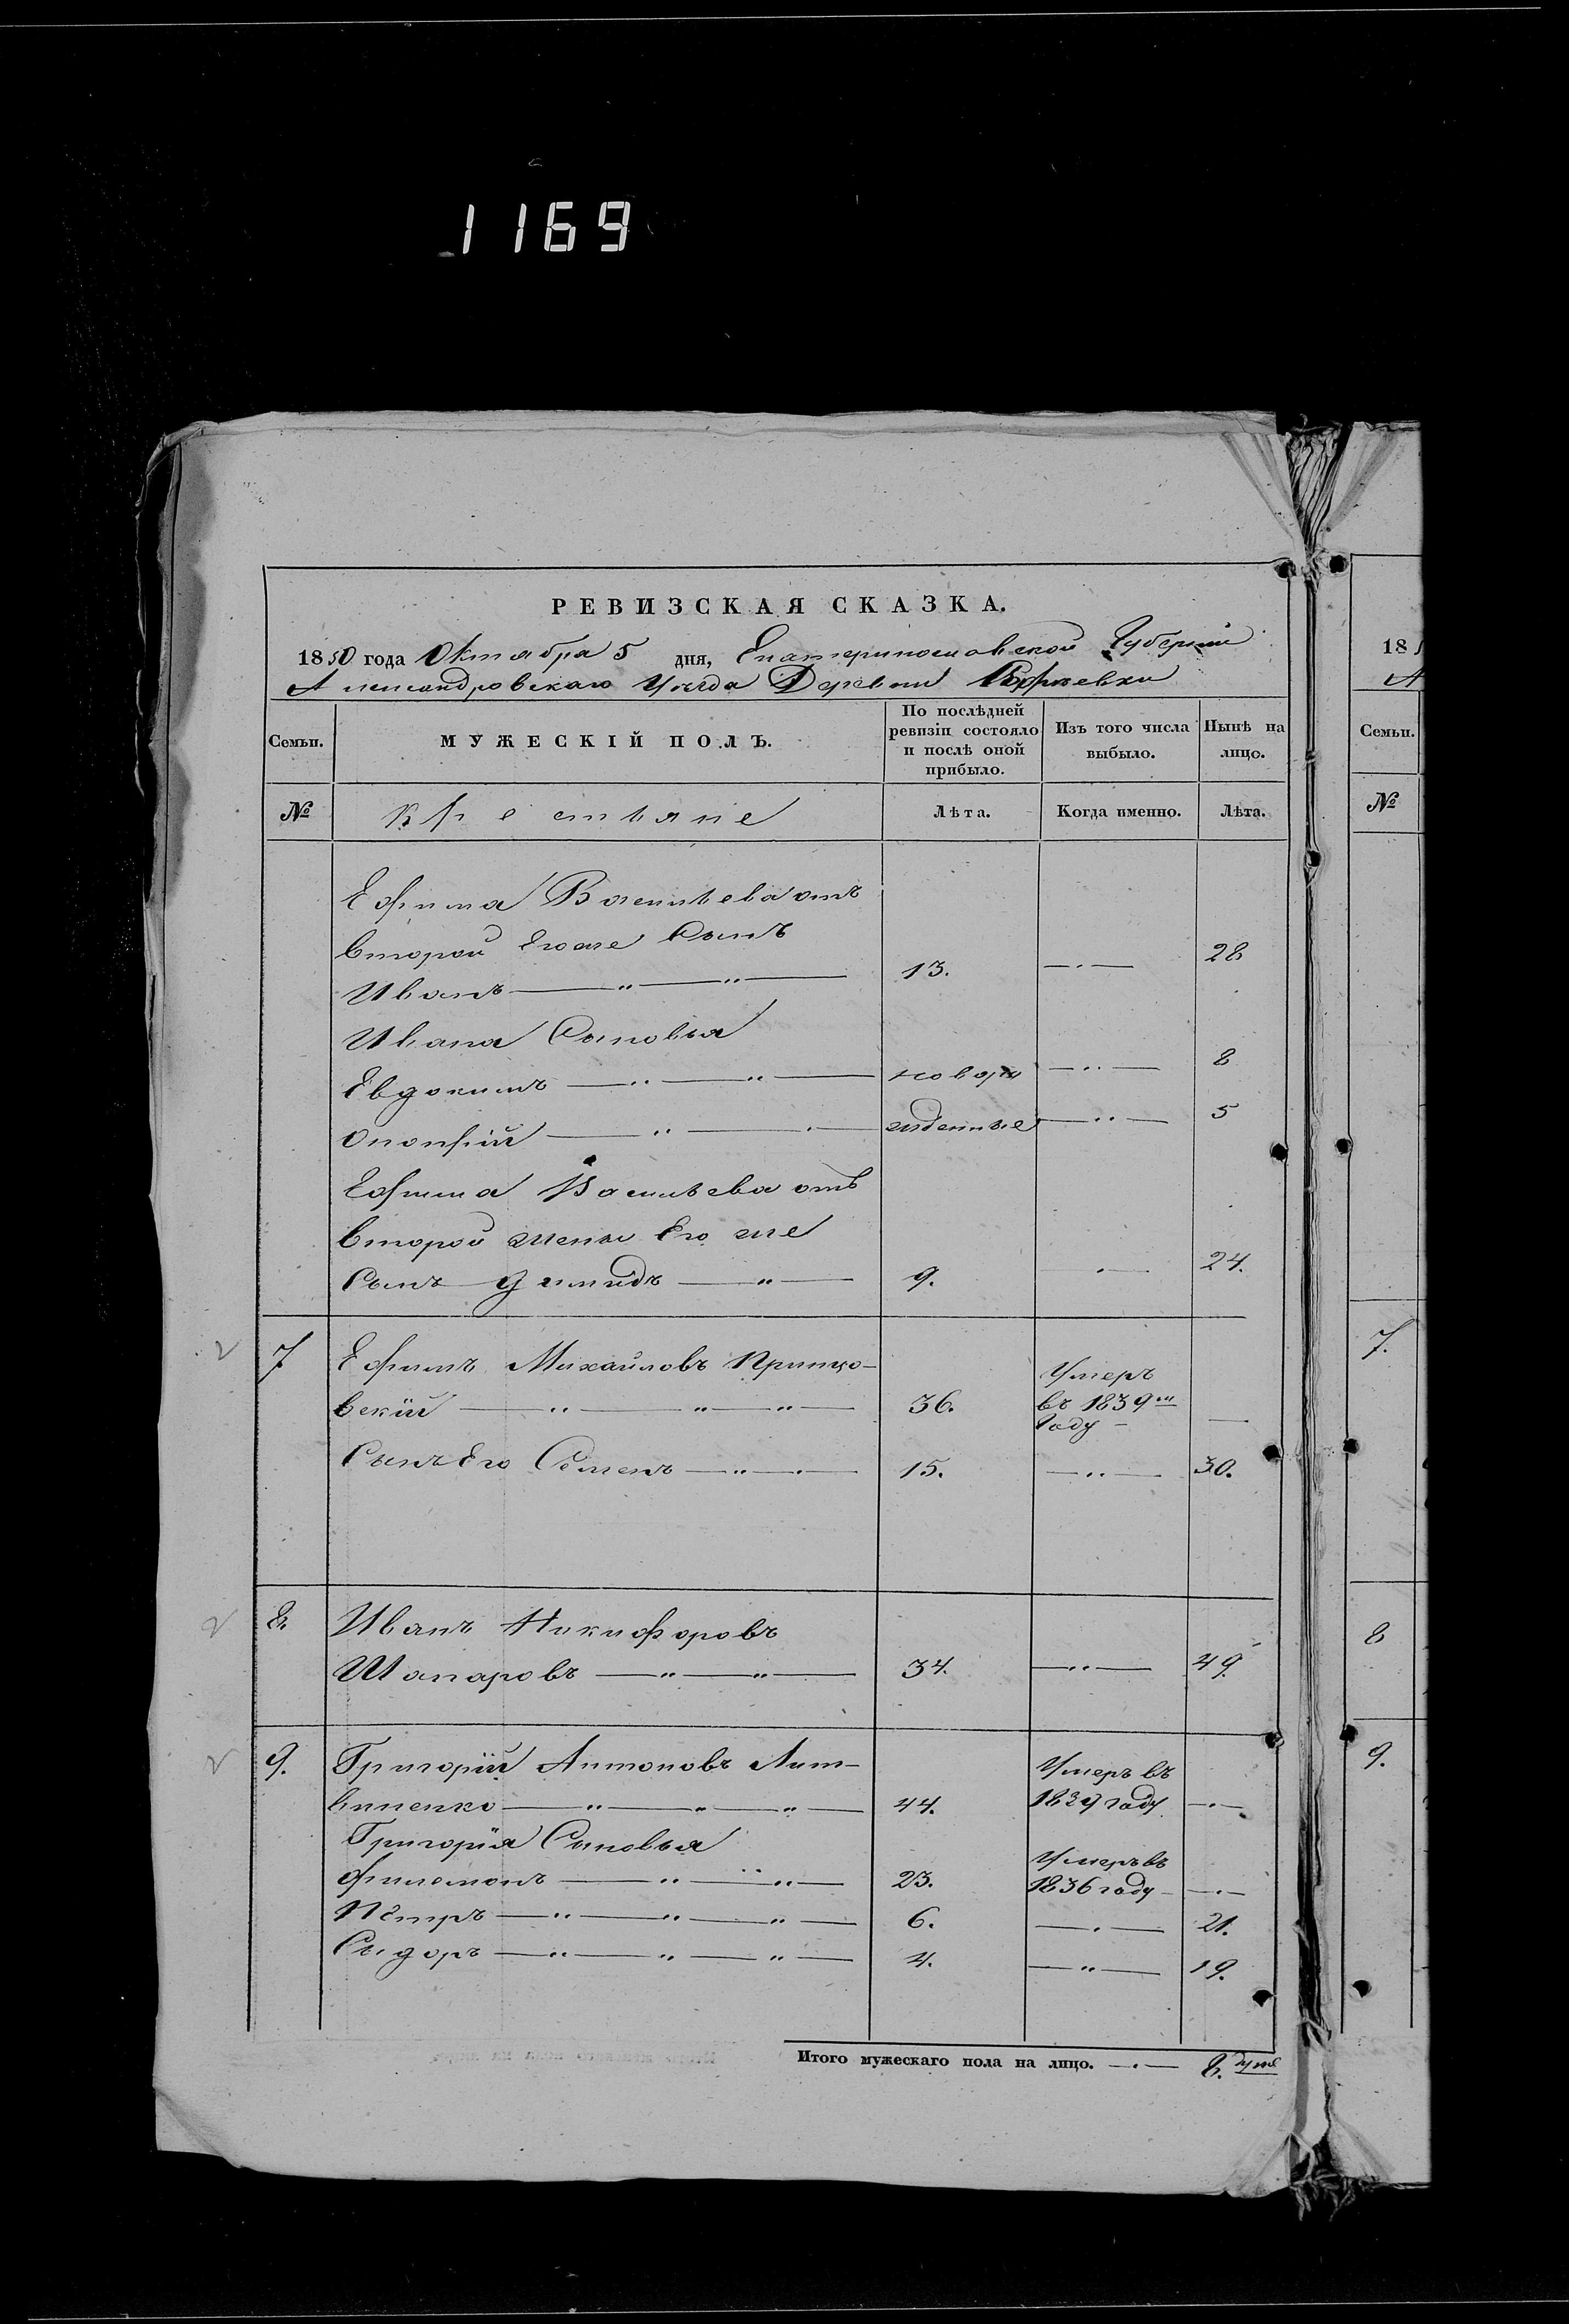 1169
РЕВИЗСКАЯ СКАЗКА.
1850 года Октября 5 дня, Екатеринославской Губернии
Александровскаго Уѣзда Деревни
Семьи. МУЖЕСКІЙ ПОЛЪ. По послѣдней ревизіи состояло и послѣ оной прибыло. Изъ того числа выбыло. Нынѣ на лицо.
№ Крестьяне Лѣта. Когда именно. Лѣта.
Ефима Васильева отъ
второй Егоже Сынъ
Иванъ 13. 28
Ивана Сыновья
Евдокимъ новоро 8
Онопрій жденные 5
Ефима Васильева отъ
второй жены Его же
Сынъ Димидъ 9. 24.
7 Ефимъ Михайловъ Прицко-
вскій 36. Умеръ въ 1839м Году
Сынъ Его Семенъ 15. 30.
8. Иванъ Никифоровъ
Шапаровъ 34. 49.
9. Григорій Антоновъ Лит-
виненко 44. Умеръ въ 1839 году
Григорія Сыновья
Филемонъ 23. Умеръ въ 1836 году
Петръ 6. 21.
Сидоръ 4. 19.
Итого мужескаго пола на лицо. 8. душъ
18
А
Семьи.
№
7.
8
9.